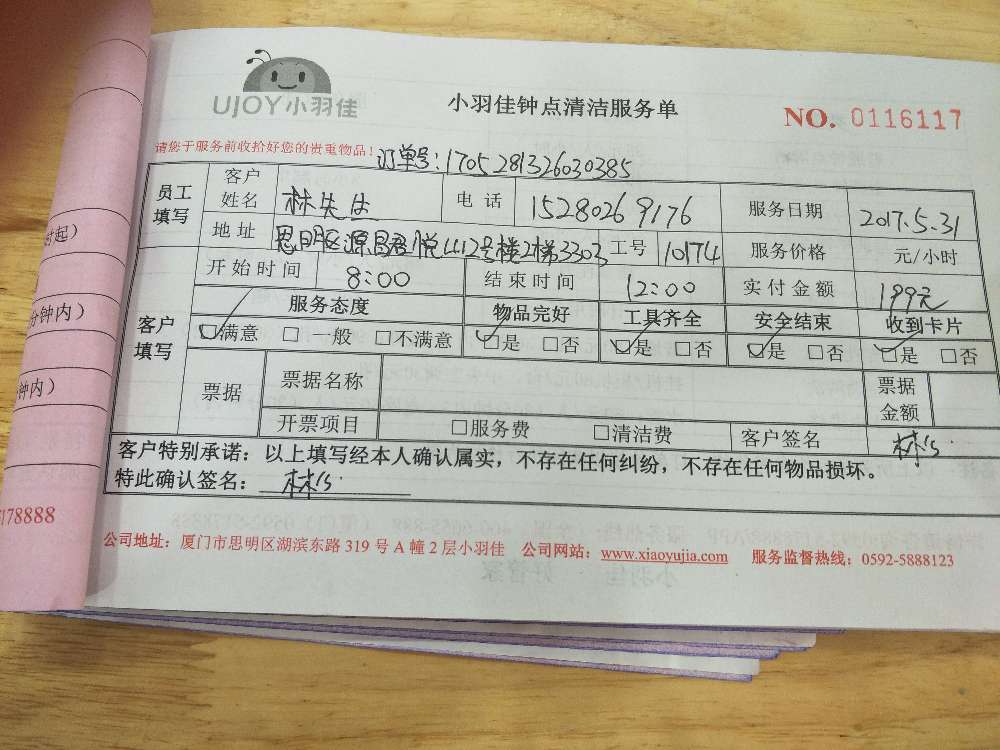 UJOY小羽佳
小羽佳钟点清洁服务单
NO. 0116117
请您于服务前收拾好您的贵重物品!
订单号:1705281326030385
员工填写 客户姓名 林先生 电话 15280269176 服务日期 2017.5.31
地址 思明区源昌君悦山12号楼2梯3303 工号 10174 服务价格 元/小时
客户填写 开始时间 8:00 结束时间 12:00 实付金额 199元
服务态度 物品完好 工具齐全 安全结束 收到卡片
☑满意 □一般 □不满意 ☑是 □否 ☑是 □否 ☑是 □否 ☑是 □否
票据 票据名称 票据金额
开票项目 □服务费 □清洁费 客户签名 林
客户特别承诺:以上填写经本人确认属实,不存在任何纠纷,不存在任何物品损坏。
特此确认签名:林
公司地址:厦门市思明区湖滨东路 319 号 A 幢 2 层小羽佳 公司网站:www.xiaoyujia.com 服务监督热线:0592-5888123
时起)
分钟内)
钟内)
178888